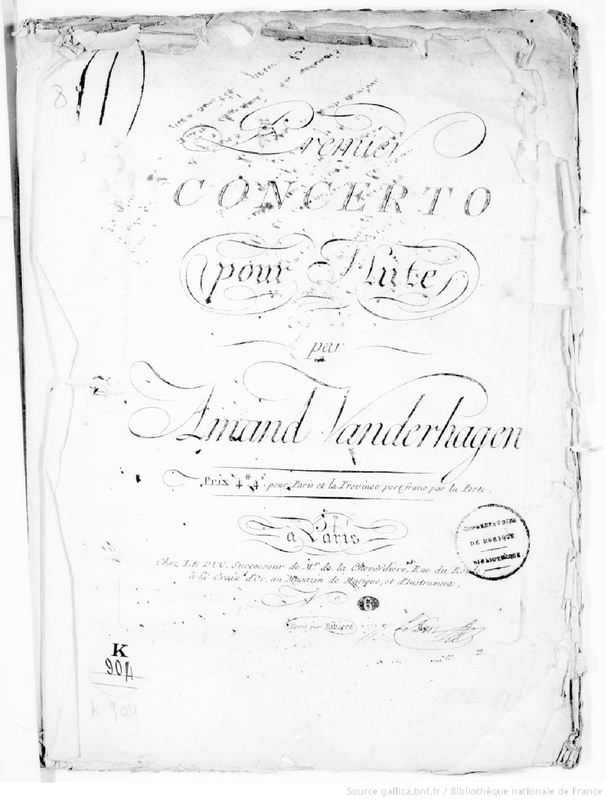 8
Premier
CONCERTO
pour Flûte
par
Amand Vanderhagen
Prix 4# 4s pour Paris et la Province port franc par la Poste.
à Paris
Chez LE DUC, Successeur de Mr. de la Chevardiere, Rue du Roule
à la Croix d'Or, au Magazin de Musique, et d'Instruments,
N° 6
Ecrit par Ribiere
CONSERVATOIRE
DE MUSIQUE
BIBLIOTHÈQUE
K
904
K 904
Source gallica.bnf.fr / Bibliothèque nationale de France